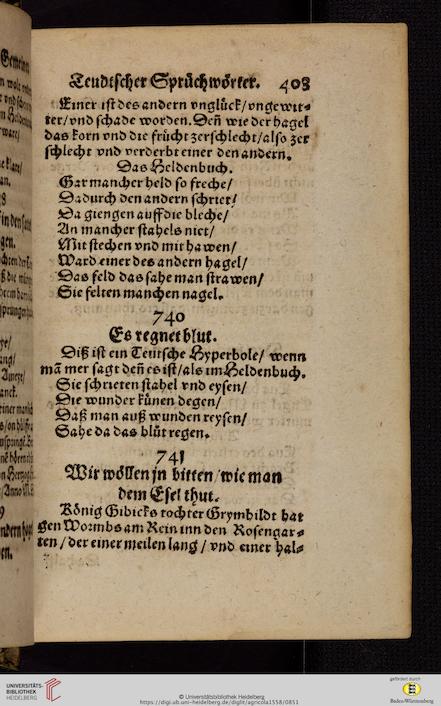 Teudtscher Sprüchwörter. 403
Einer ist des andern vnglück/vngewit-
ter/vnd schade worden. Deñ wie der hagel
das korn vnd die frücht zerschlecht/also zer
schlecht vnd verderbt einer den andern.
Das Heldenbuch.
Gar mancher held so freche/
Dadurch den andern schriet/
Da giengen auff die bleche/
An mancher stahels niet/
Mit stechen vnd mit hawen/
Ward einer des andern hagel/
Das feld das sahe man strawen/
Sie felten manchen nagel.
740
Es regnet blut.
Diß ist ein Teutsche Hyperbole/ wenn
mã mer sagt deñ es ist/als im Heldenbuch.
Sie schrieten stahel vnd eysen/
Die wunder künen degen/
Daß man auß wunden reysen/
Sahe da das blůt regen.
741
Wir wöllen jn bitten/wie man
dem Esel thut.
König Gibicks tochter Grymhildt hat
gen Wormbs am Rein inn den Rosengar-
ten/der einer meilen lang/vnd einer hal-
UNIVERSITÄTS-
BIBLIOTHEK
HEIDELBERG
© Universitätsbibliothek Heidelberg
https://digi.ub.uni-heidelberg.de/diglit/agricola1558/0851
gefördert durch
Baden-Württemberg